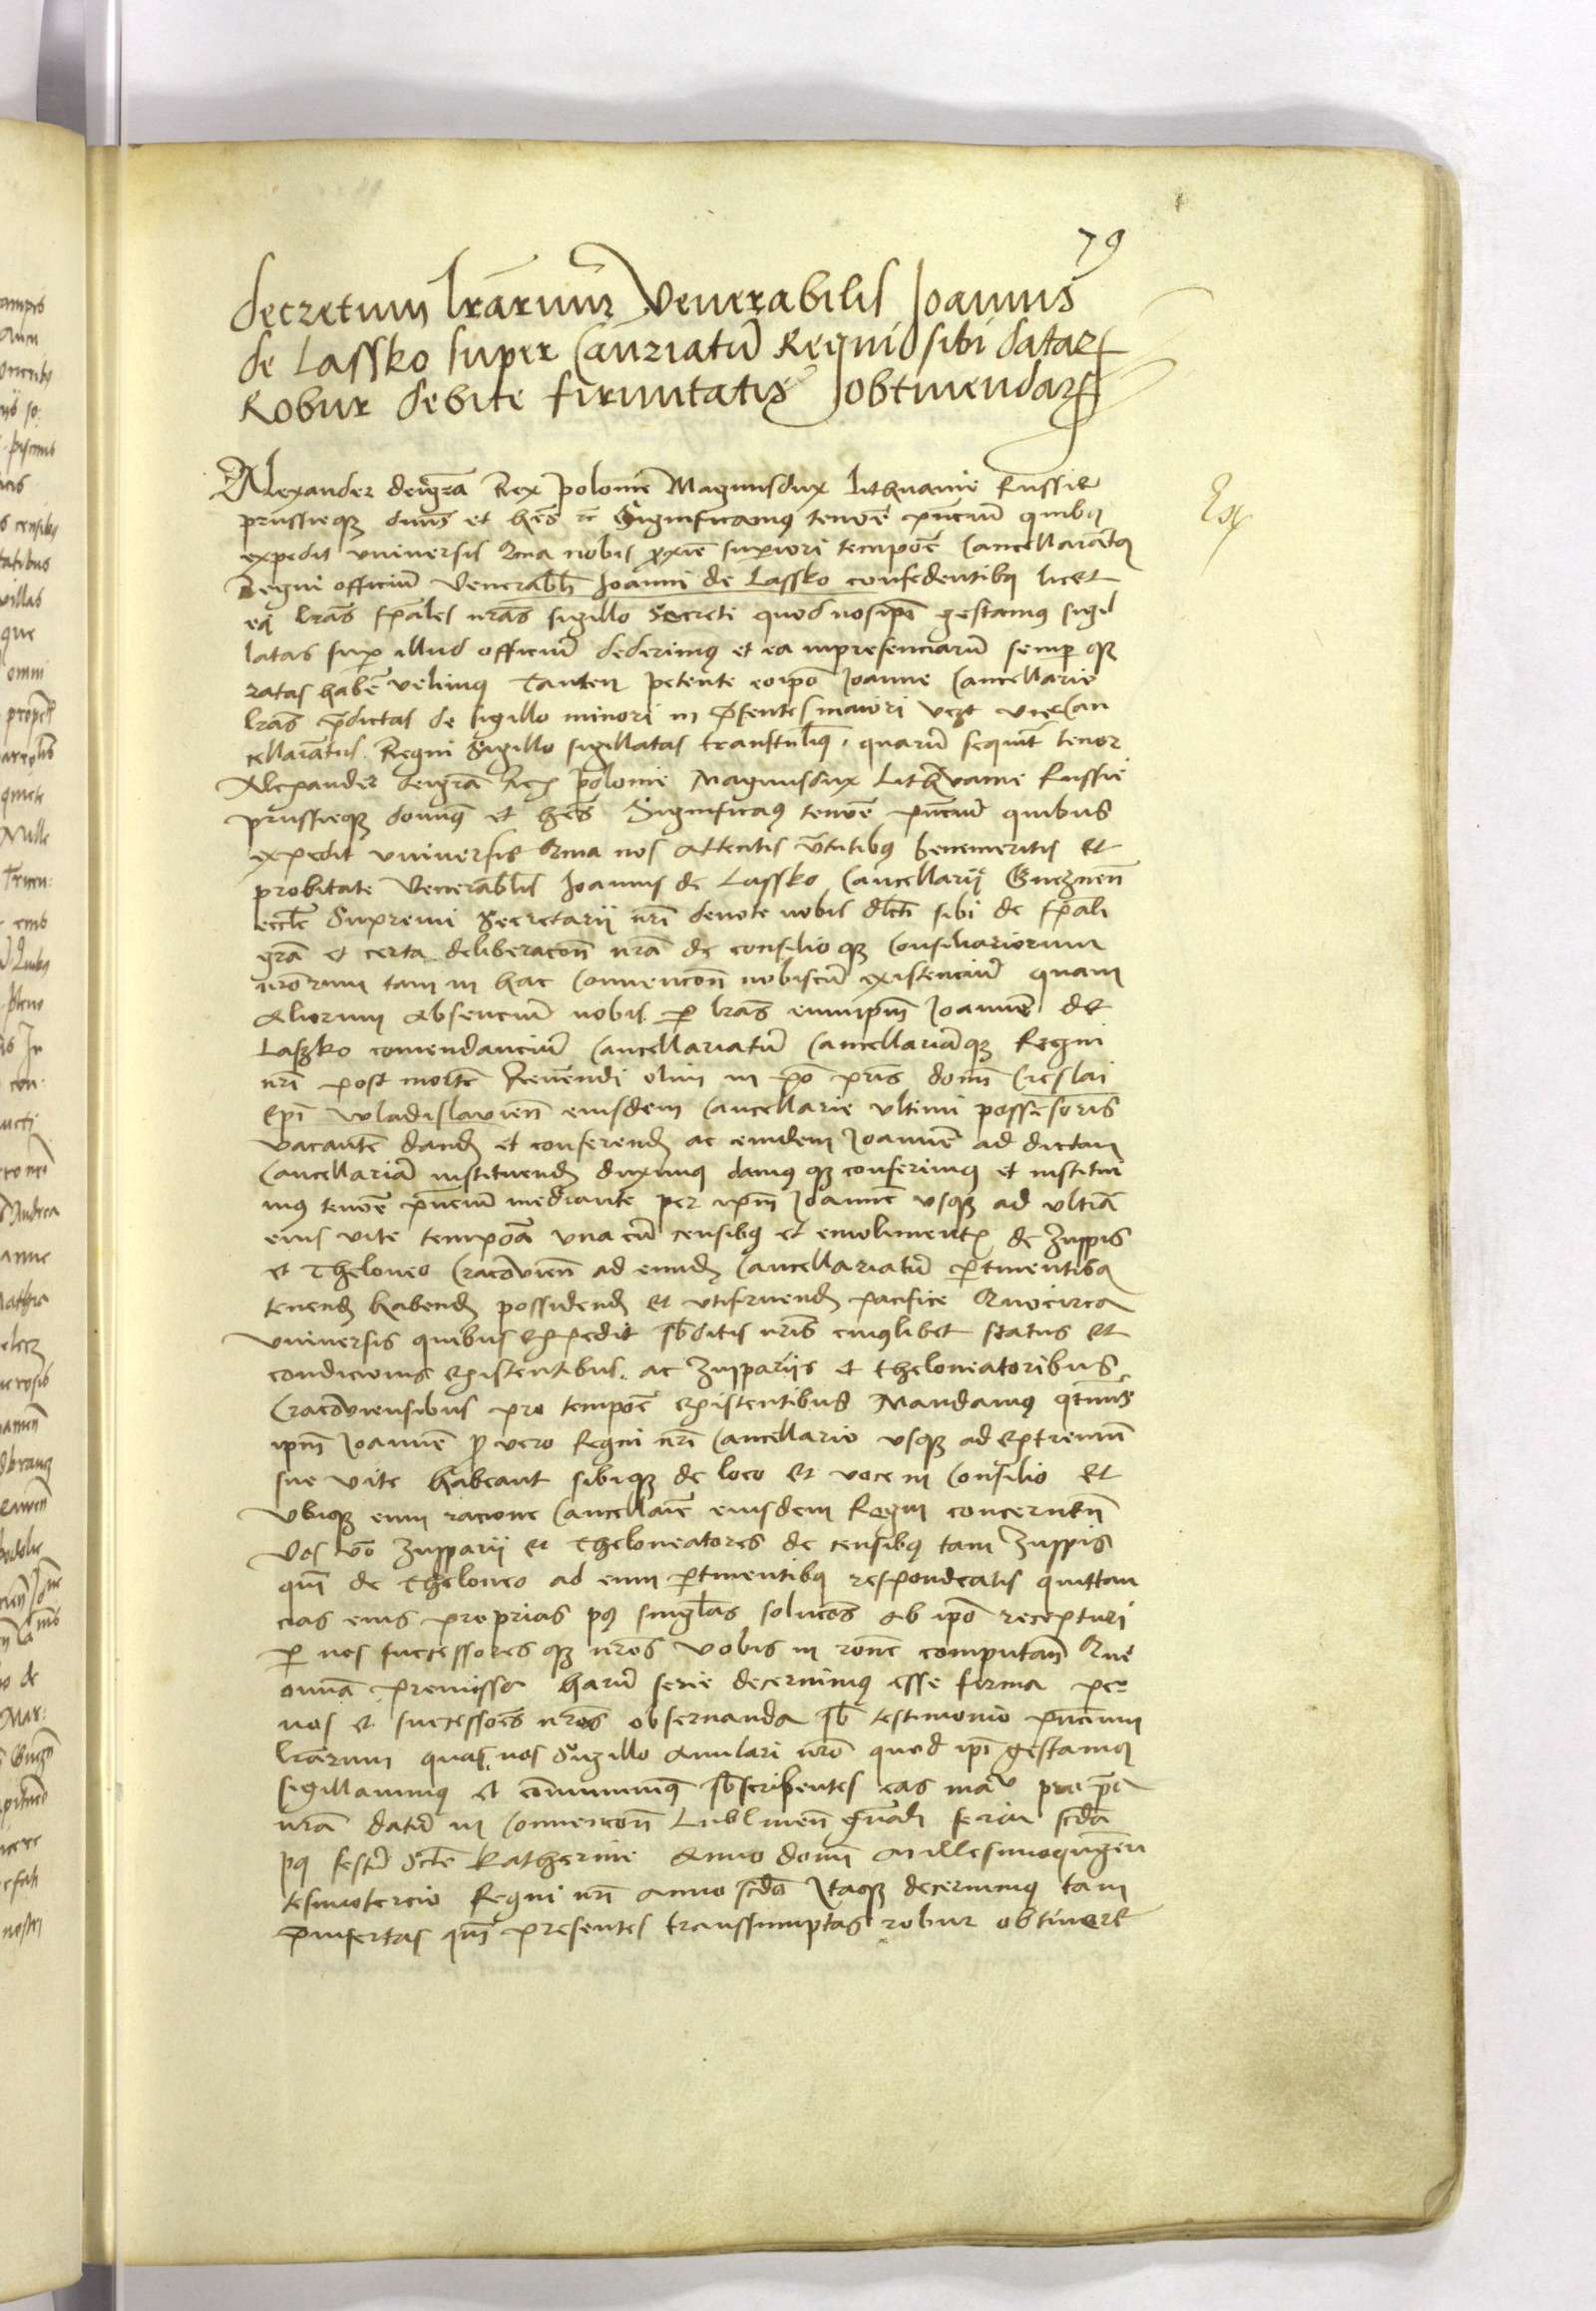 79
decretum lrarum Venerabilis Joannis
de Lassko super Canriatu Regni sibi datar
Robur debite firmitatis obtinendar
Alexander dei gra Rex polonie Magnus dux lithuanie Russie
prussieq dnus et heres Significamus tenore pncium quibus
expedit universis Qma nobis proxime superiori tempore Cancellariatus
Regni officium Venerabili Joanni de Lassko confedentibus licet
ea lras spales nras sigillo Secreti quod nosipsi gestamus sigil
latas super illud officiu dederimus et ea inpresenciaru semper q
ratas habere velimus Tamten petente eoipso Joanne Cancellarie
lras predictas de sigillo minori in presentes maiori vezt vice Can
cellariatus Regni Sigillo sigillatas transtulimus quaru sequit tenor
Alexander dei gra Rex polonie Magnus dux Lithvanie Russie
prussieq dominus et heres Significamus tenore pncium quibus
expedit universis Qma nos attentis virtutibus benemeritis et
probitate Venerabilis Joannis de Lassko Cancellarij Gneznen
eccle Supremi Secretarii nri devote nobis dilecti sibi de spali
gra et certa deliberacone nra de consilio q Consiliariorum
nrorum tam in hac Convencone nobiscu existenciu quam
aliorum absenciu nobis per lras eumipm Joannem de
Laszko comendanciu Cancellariatu Cancellariamq Regni
nri post mortem Reverendi olim in xpo pris domini Creslai
Epi Wladislavien eiusdem Cancellarie ultimi possessoris
vacantem dand et conferend ac eundem Joannem ad dictam
Cancellariam instituend duximus damus q conferimus et institui
mus tenore pncium mediante per ipm Joannem usq ad ultima
eius vite tempora una cu censibus et emolimentis de Zuppis
et Theloneo Cracovien ad eund Cancellariatum pertinentibus
tenend habend possidend et utifruend pacifice Quocirca
universis quibus expedit subditis nris cuiuslibet status et
condicionis existentibus ac Zuppariis et theloneatoribus
Cracoviensibus pro tempore existentibus Mandamus qtinus
ipm Joannem pro vero Regni nri Cancellario usq ad extremu
sue vite habeant sibiq de loco et voce in Consilio et
ubiq eum racione Cancellarie eiusdem Regni concernen
Vos vero Zupparii et Theloneatores de censibus tam Zuppis
qm de Theloneo ad eum pertinentibus respondeatis quittan
cias eius proprias post singlas solucones ab ipo recepturi
per nos successores q nros vobis in rone computan Que
omnia premissa haru serie decernimus esse firma per
nos et successores nros observanda sub testimonio pncium
lrarum quas nos Sugillo anulari nro quod ipi gestamus
sigillavimus et communimus subscribentes eas manu propria
nra datum in Convencone Lublinen gnali feria scda
post festu Scte Katherine Anno domini Millesimoquingen
tesimotercio Regni nri anno scdo Itaq decernimus tam
preinsertas qm presentes transsumptas robur obtinere